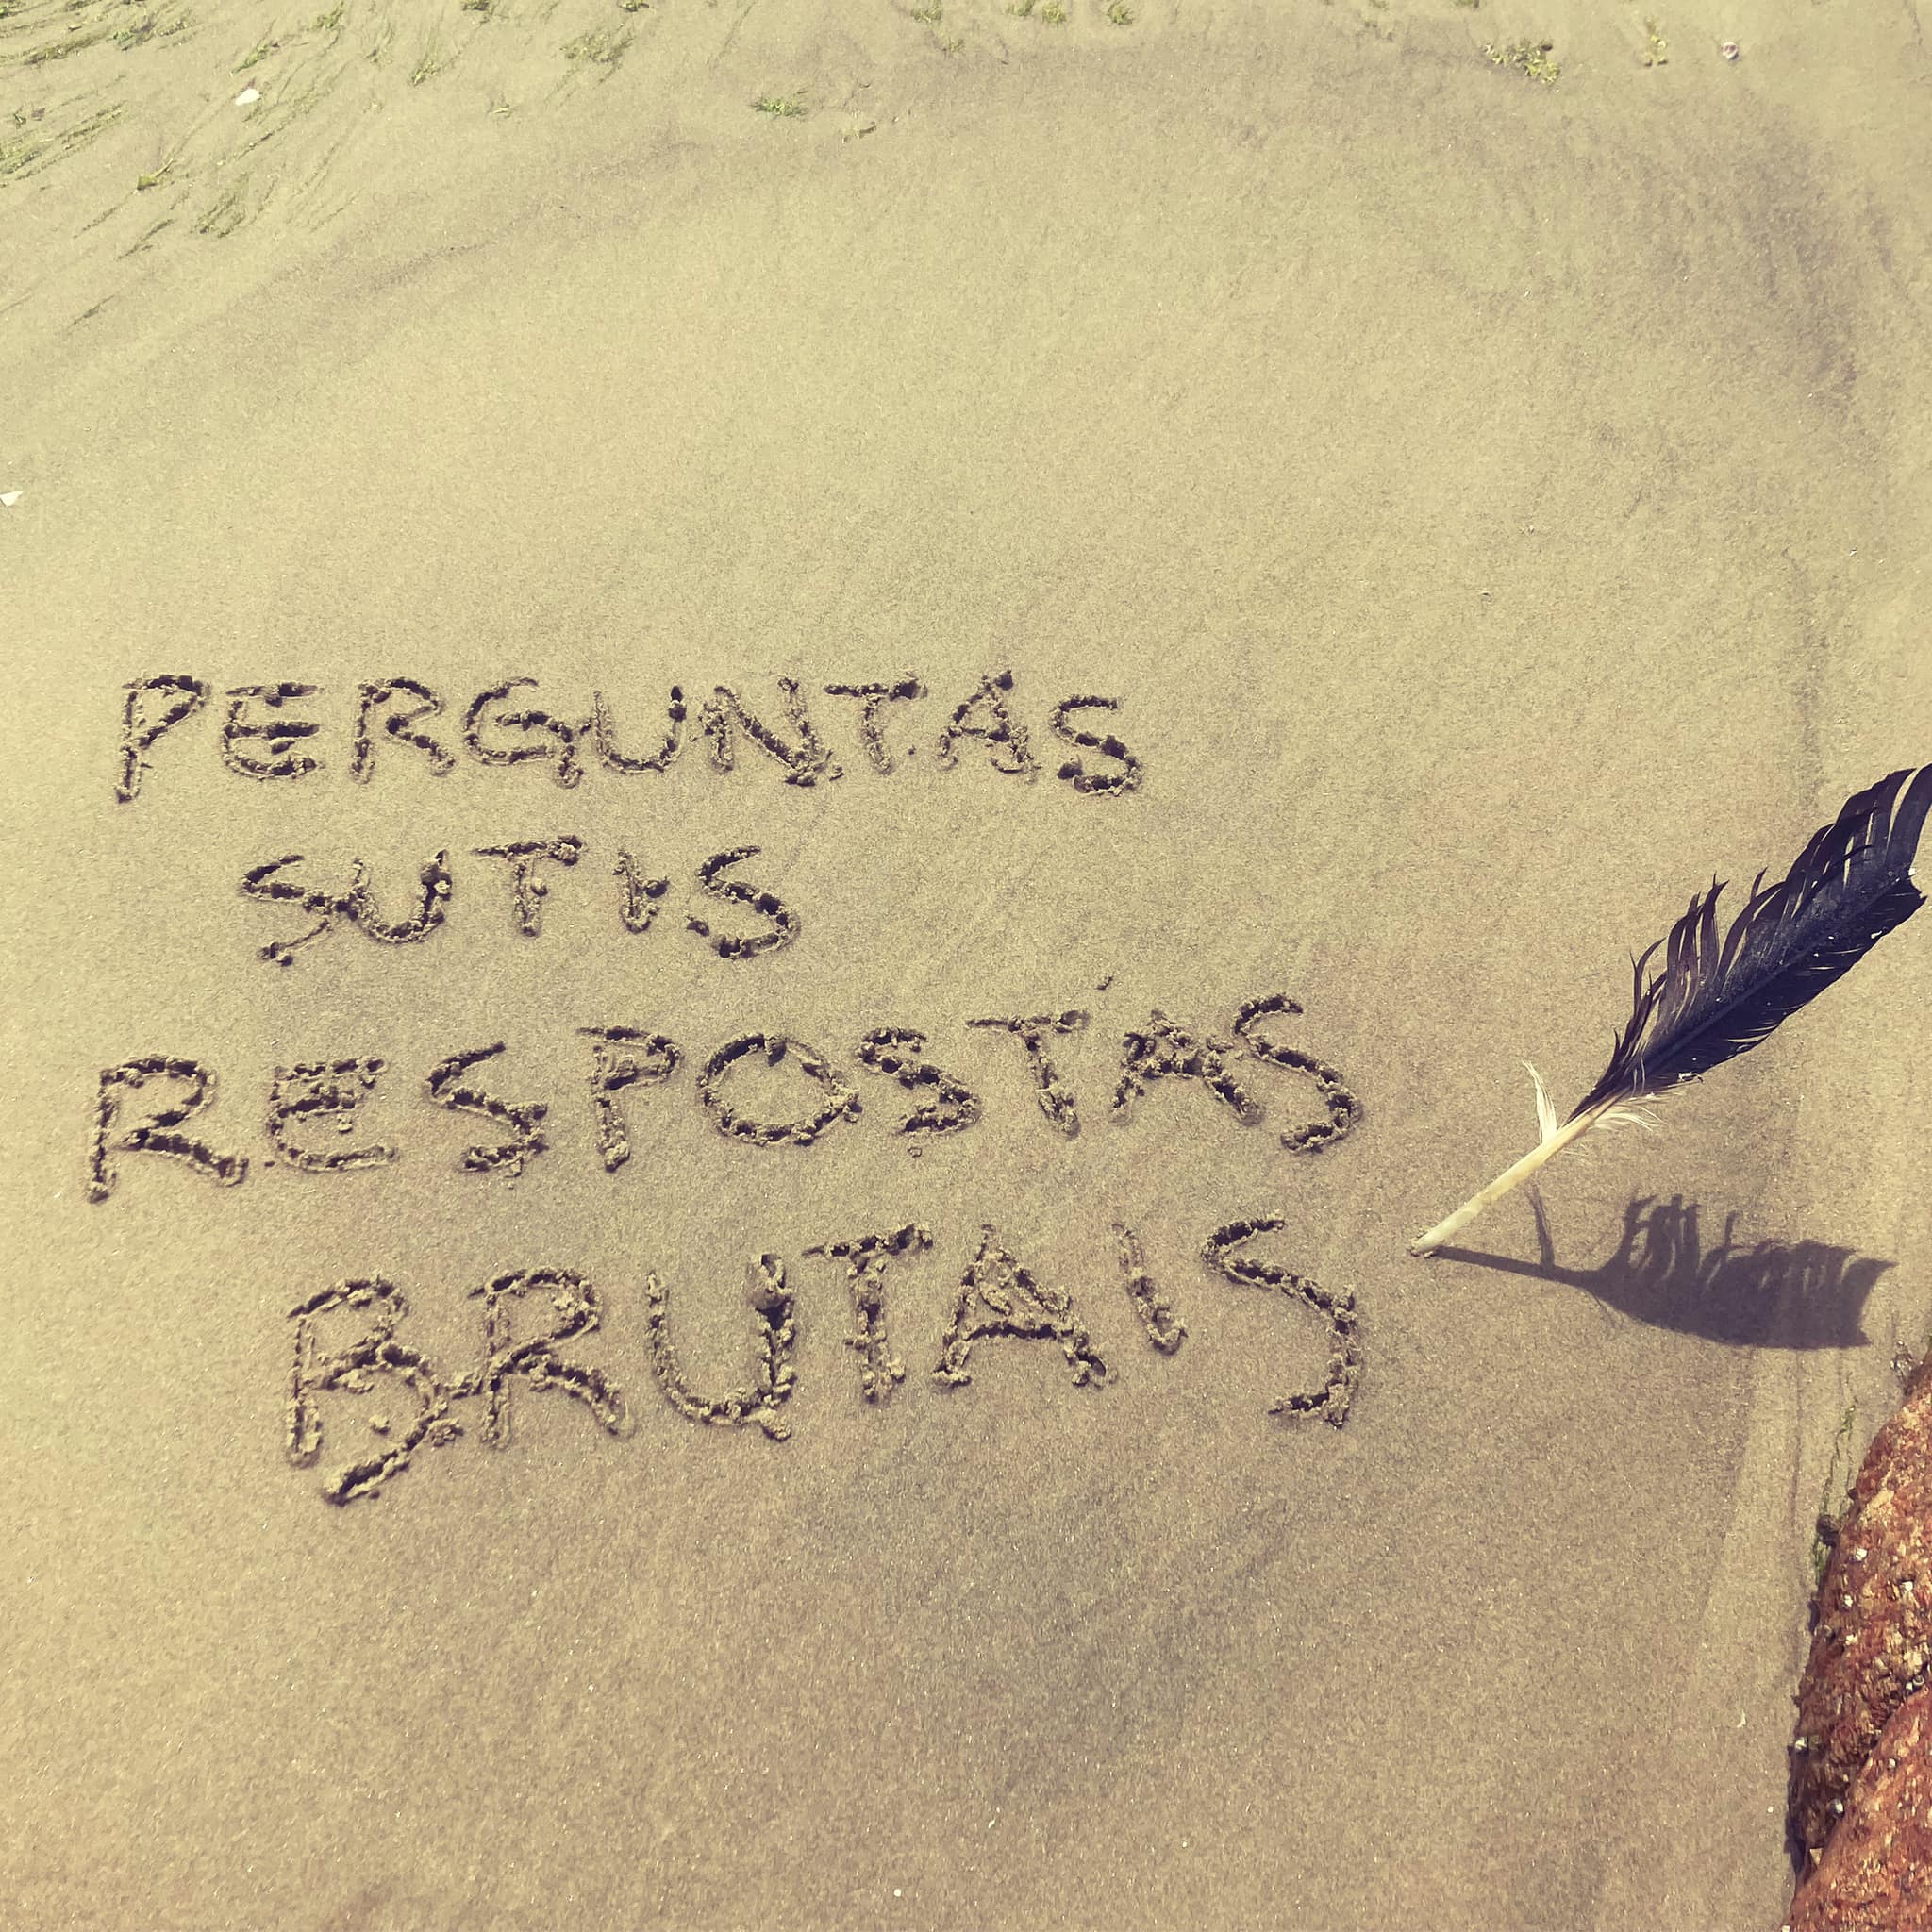 PERGUNTAS
SUTIS
RESPOSTAS
BRUTAIS